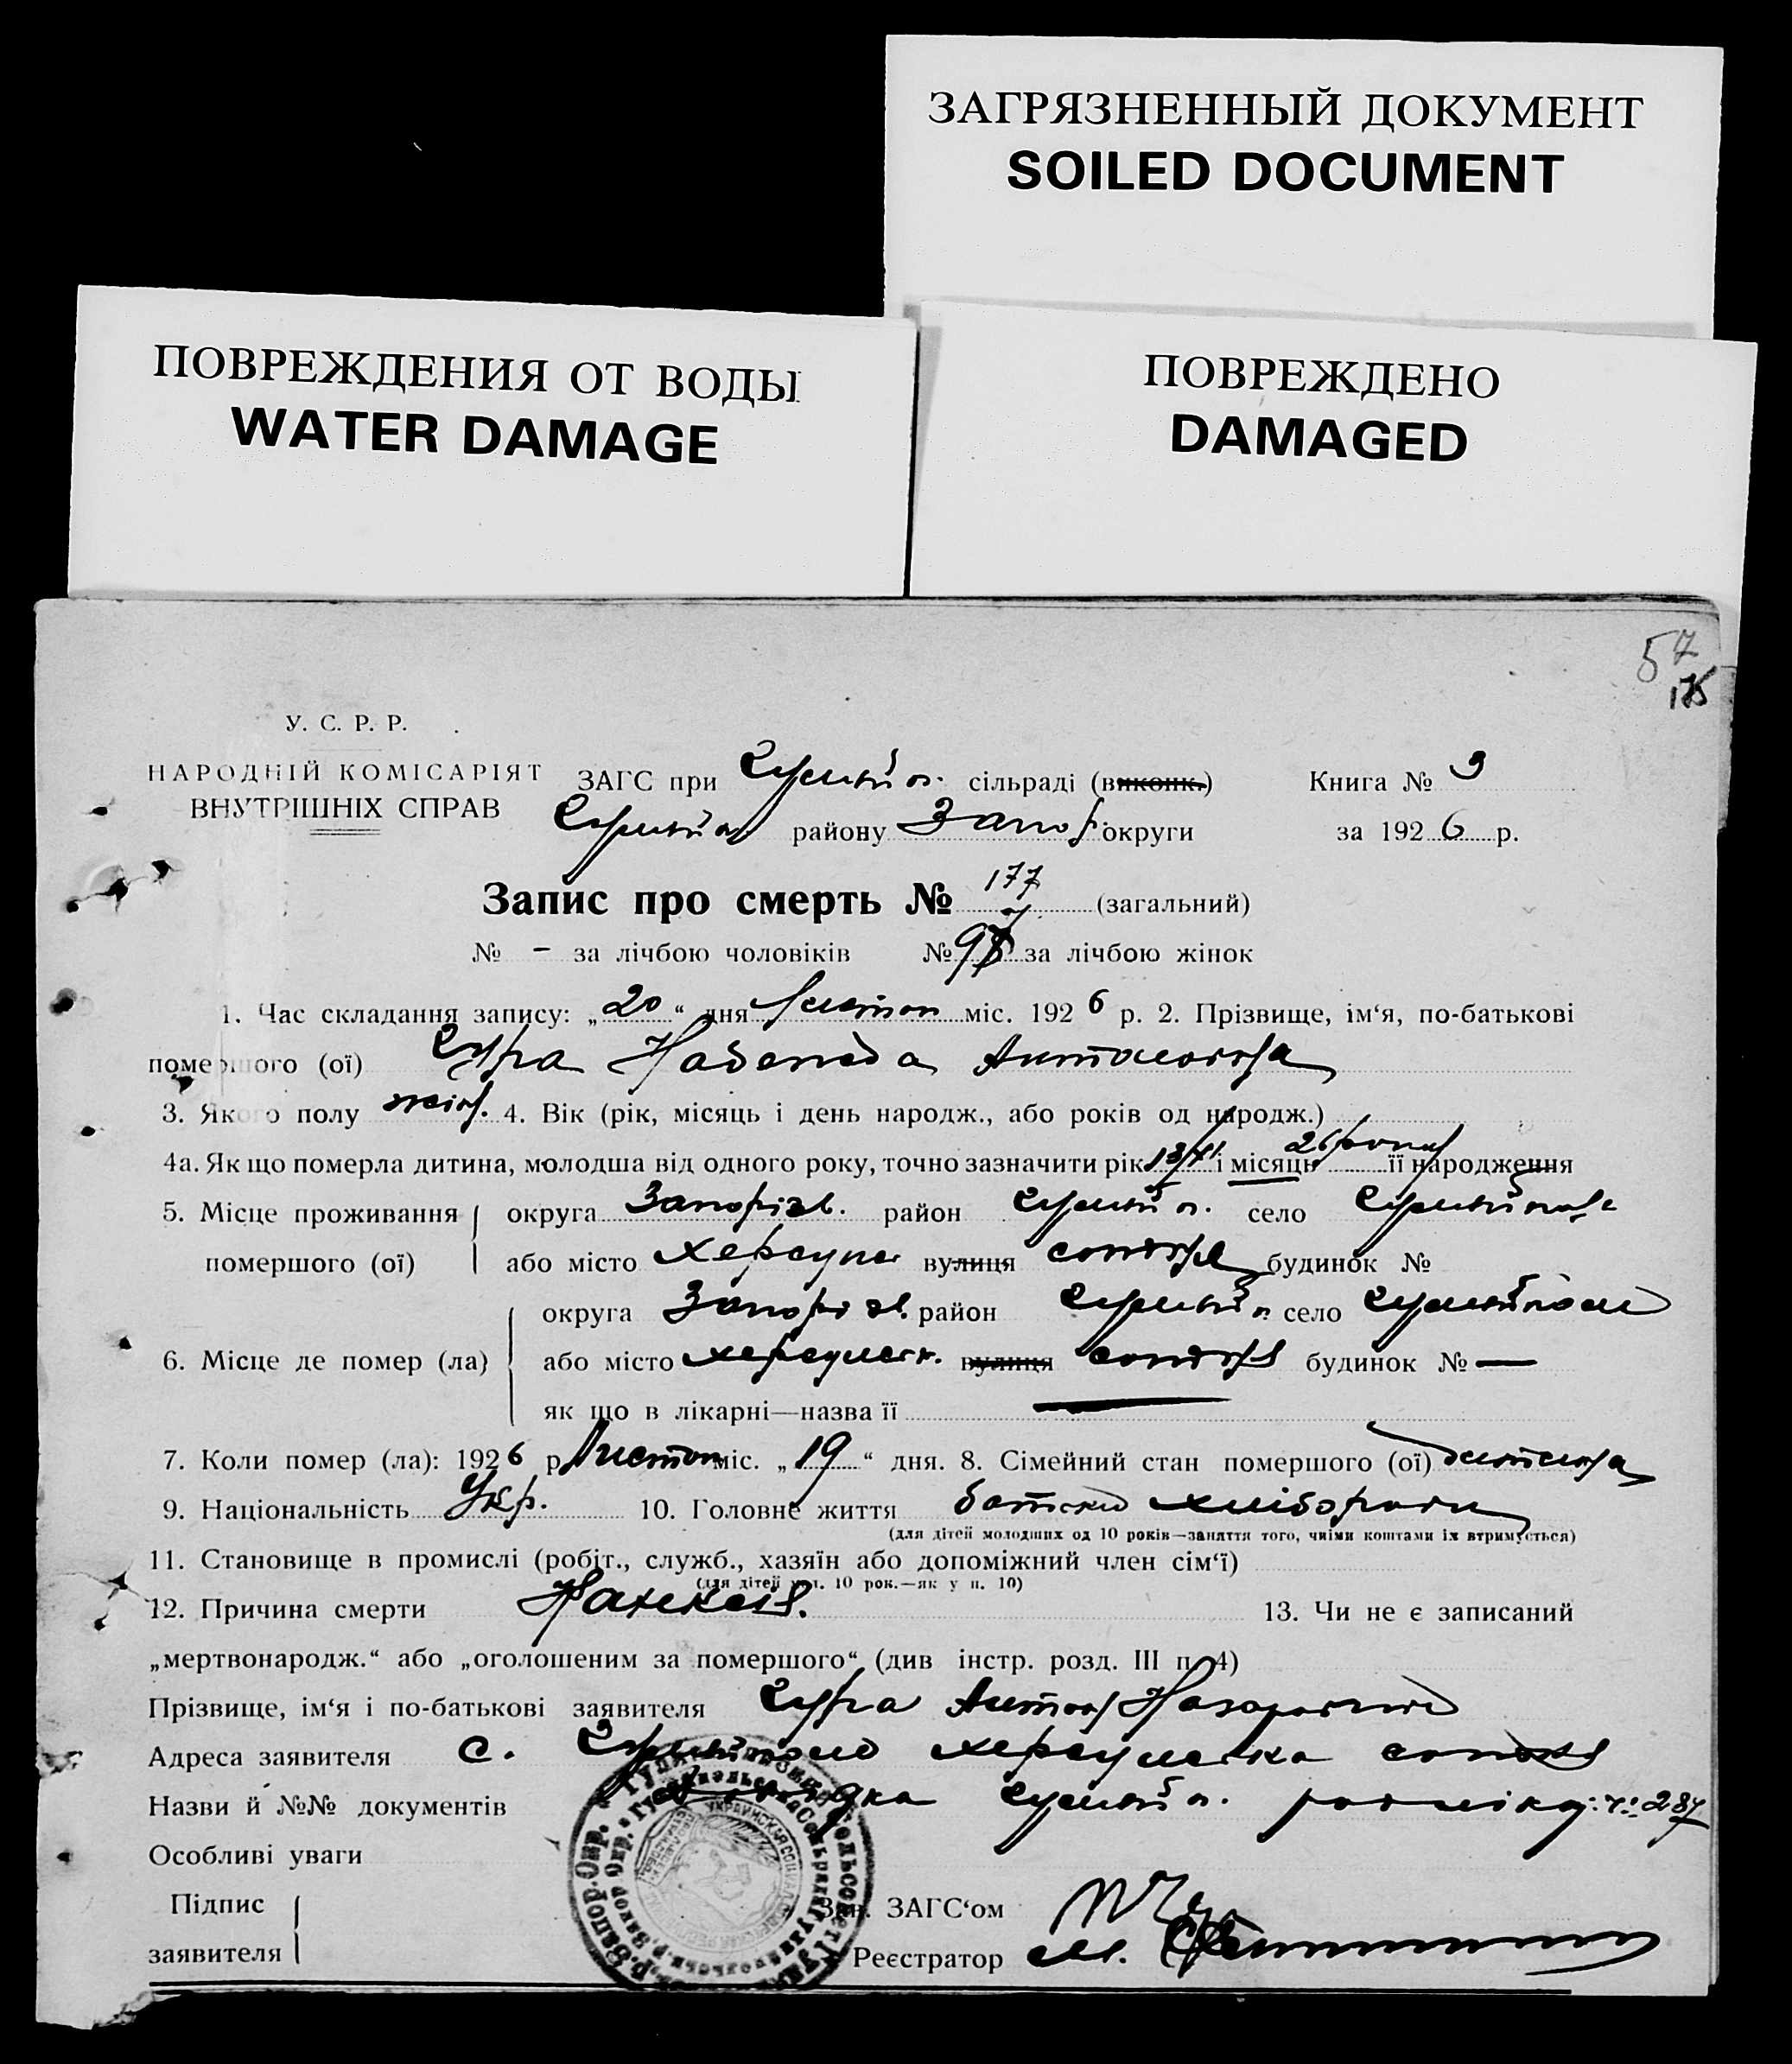 ЗАГРЯЗНЕННЫЙ ДОКУМЕНТ
SOILED DOCUMENT
ПОВРЕЖДЕНИЯ ОТ ВОДЫ
WATER DAMAGE
ПОВРЕЖДЕНО
DAMAGED
57
175
У. С. Р. Р.
НАРОДНІЙ КОМІСАРІЯТ
ВНУТРІШНІХ СПРАВ
ЗАГС при Гуляйп. сільраді (виконк.) Книга № 3
Гуляйп. району Запор. округи за 1926 р.
Запис про смерть № 177 (загальний)
№ – за лічбою чоловіків № 98 за лічбою жінок
1. Час складання запису: „20“ дня Листоп міс. 1926 р. 2. Прізвище, ім‘я, по-батькові
помершого (ої) Щура Надежда Антоновна
3. Якого полу жіноч. 4. Вік (рік, місяць і день народж., або років од народж.)
4а. Як що померла дитина, молодша від одного року, точно зазначити рік 13/XI і місяць 26 року її народження
5. Місце проживання помершого (ої) округа Запоріж. район Гуляйп. село Гуляйполе
або місто Херсунск вулиця сотня будинок №
6. Місце де помер (ла) округа Запоріж. район Гуляйп. село Гуляйполе
або місто херсунск. вулиця сотня будинок № —
як що в лікарні—назва її —
7. Коли помер (ла): 1926 р. Листоп міс. „19“ дня. 8. Сімейний стан помершого (ої) дитина
9. Національність Укр. 10. Головне життя батьки хлібороби
(для дітей молодших од 10 років—заняття того, чиїми коштами їх втримується)
11. Становище в промислі (робіт., служб., хазяїн або допоміжний член сім‘ї)
(для дітей мол. 10 рок.—як у п. 10)
12. Причина смерти 13. Чи не є записаний
„мертвонародж.“ або „оголошеним за помершого“ (див інстр. розд. III п. 4)
Прізвище, ім‘я і по-батькові заявителя Щура Антон Назарович
Адреса заявителя с. Гуляйполе херсунська сотня
Назви й №№ документів Гуляйп. № 287
Особливі уваги
Підпис заявителя
Зав. ЗАГС‘ом
Реєстратор